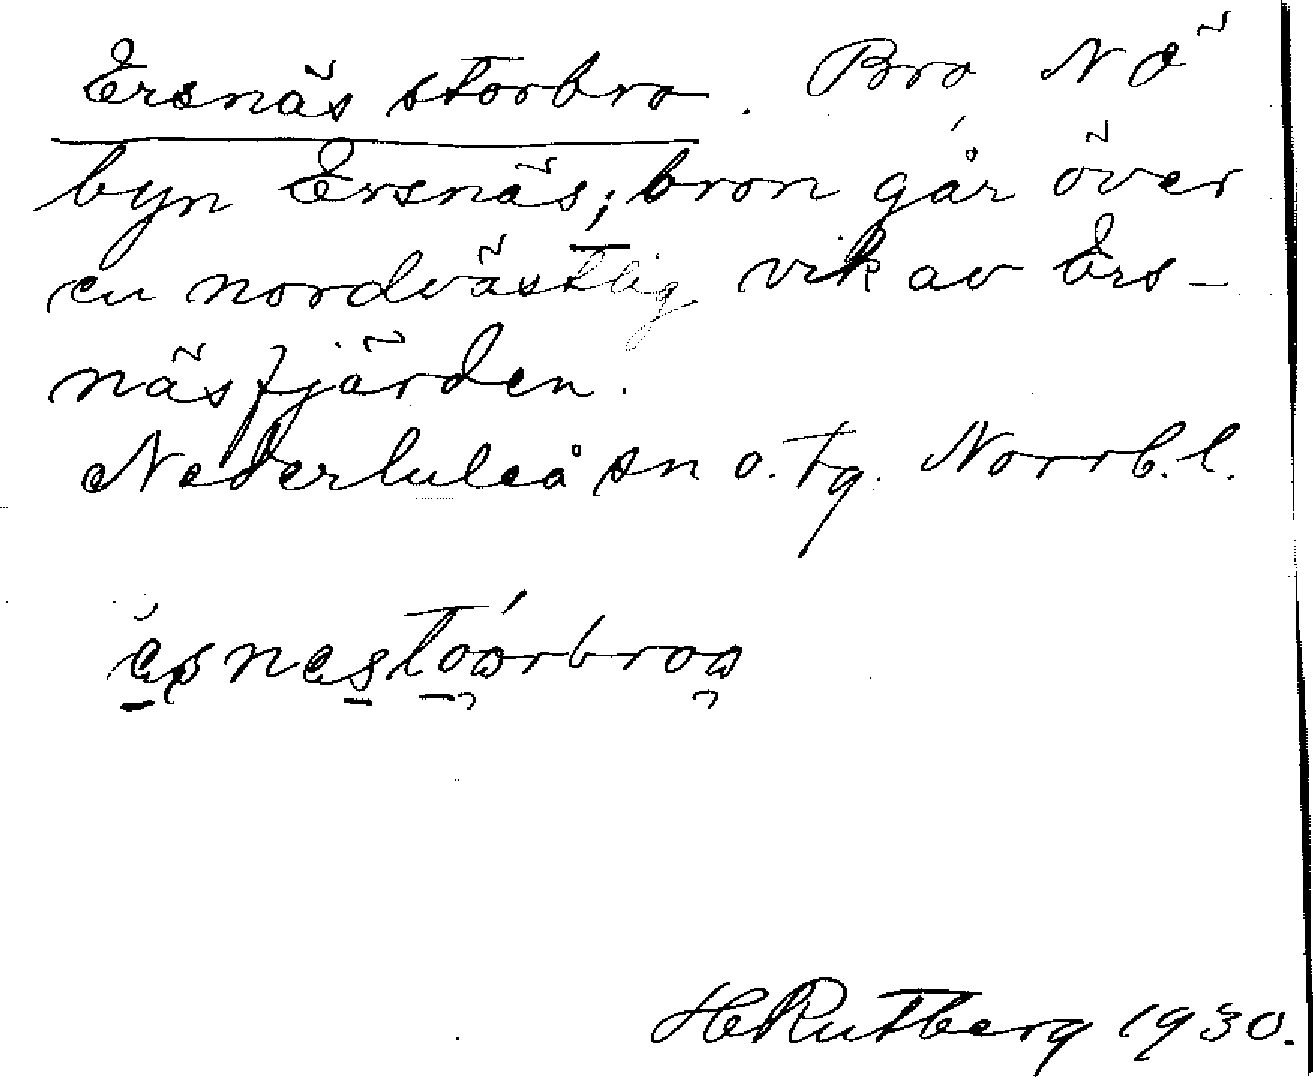 Ersnäs storbro. Bro NÖ
byn Ersnäs; bron går över
en nordvästlig vik av Ers-
näsfjärden.
Nederluleå sn o. tg. Norrb. l.
HRutberg 1930.